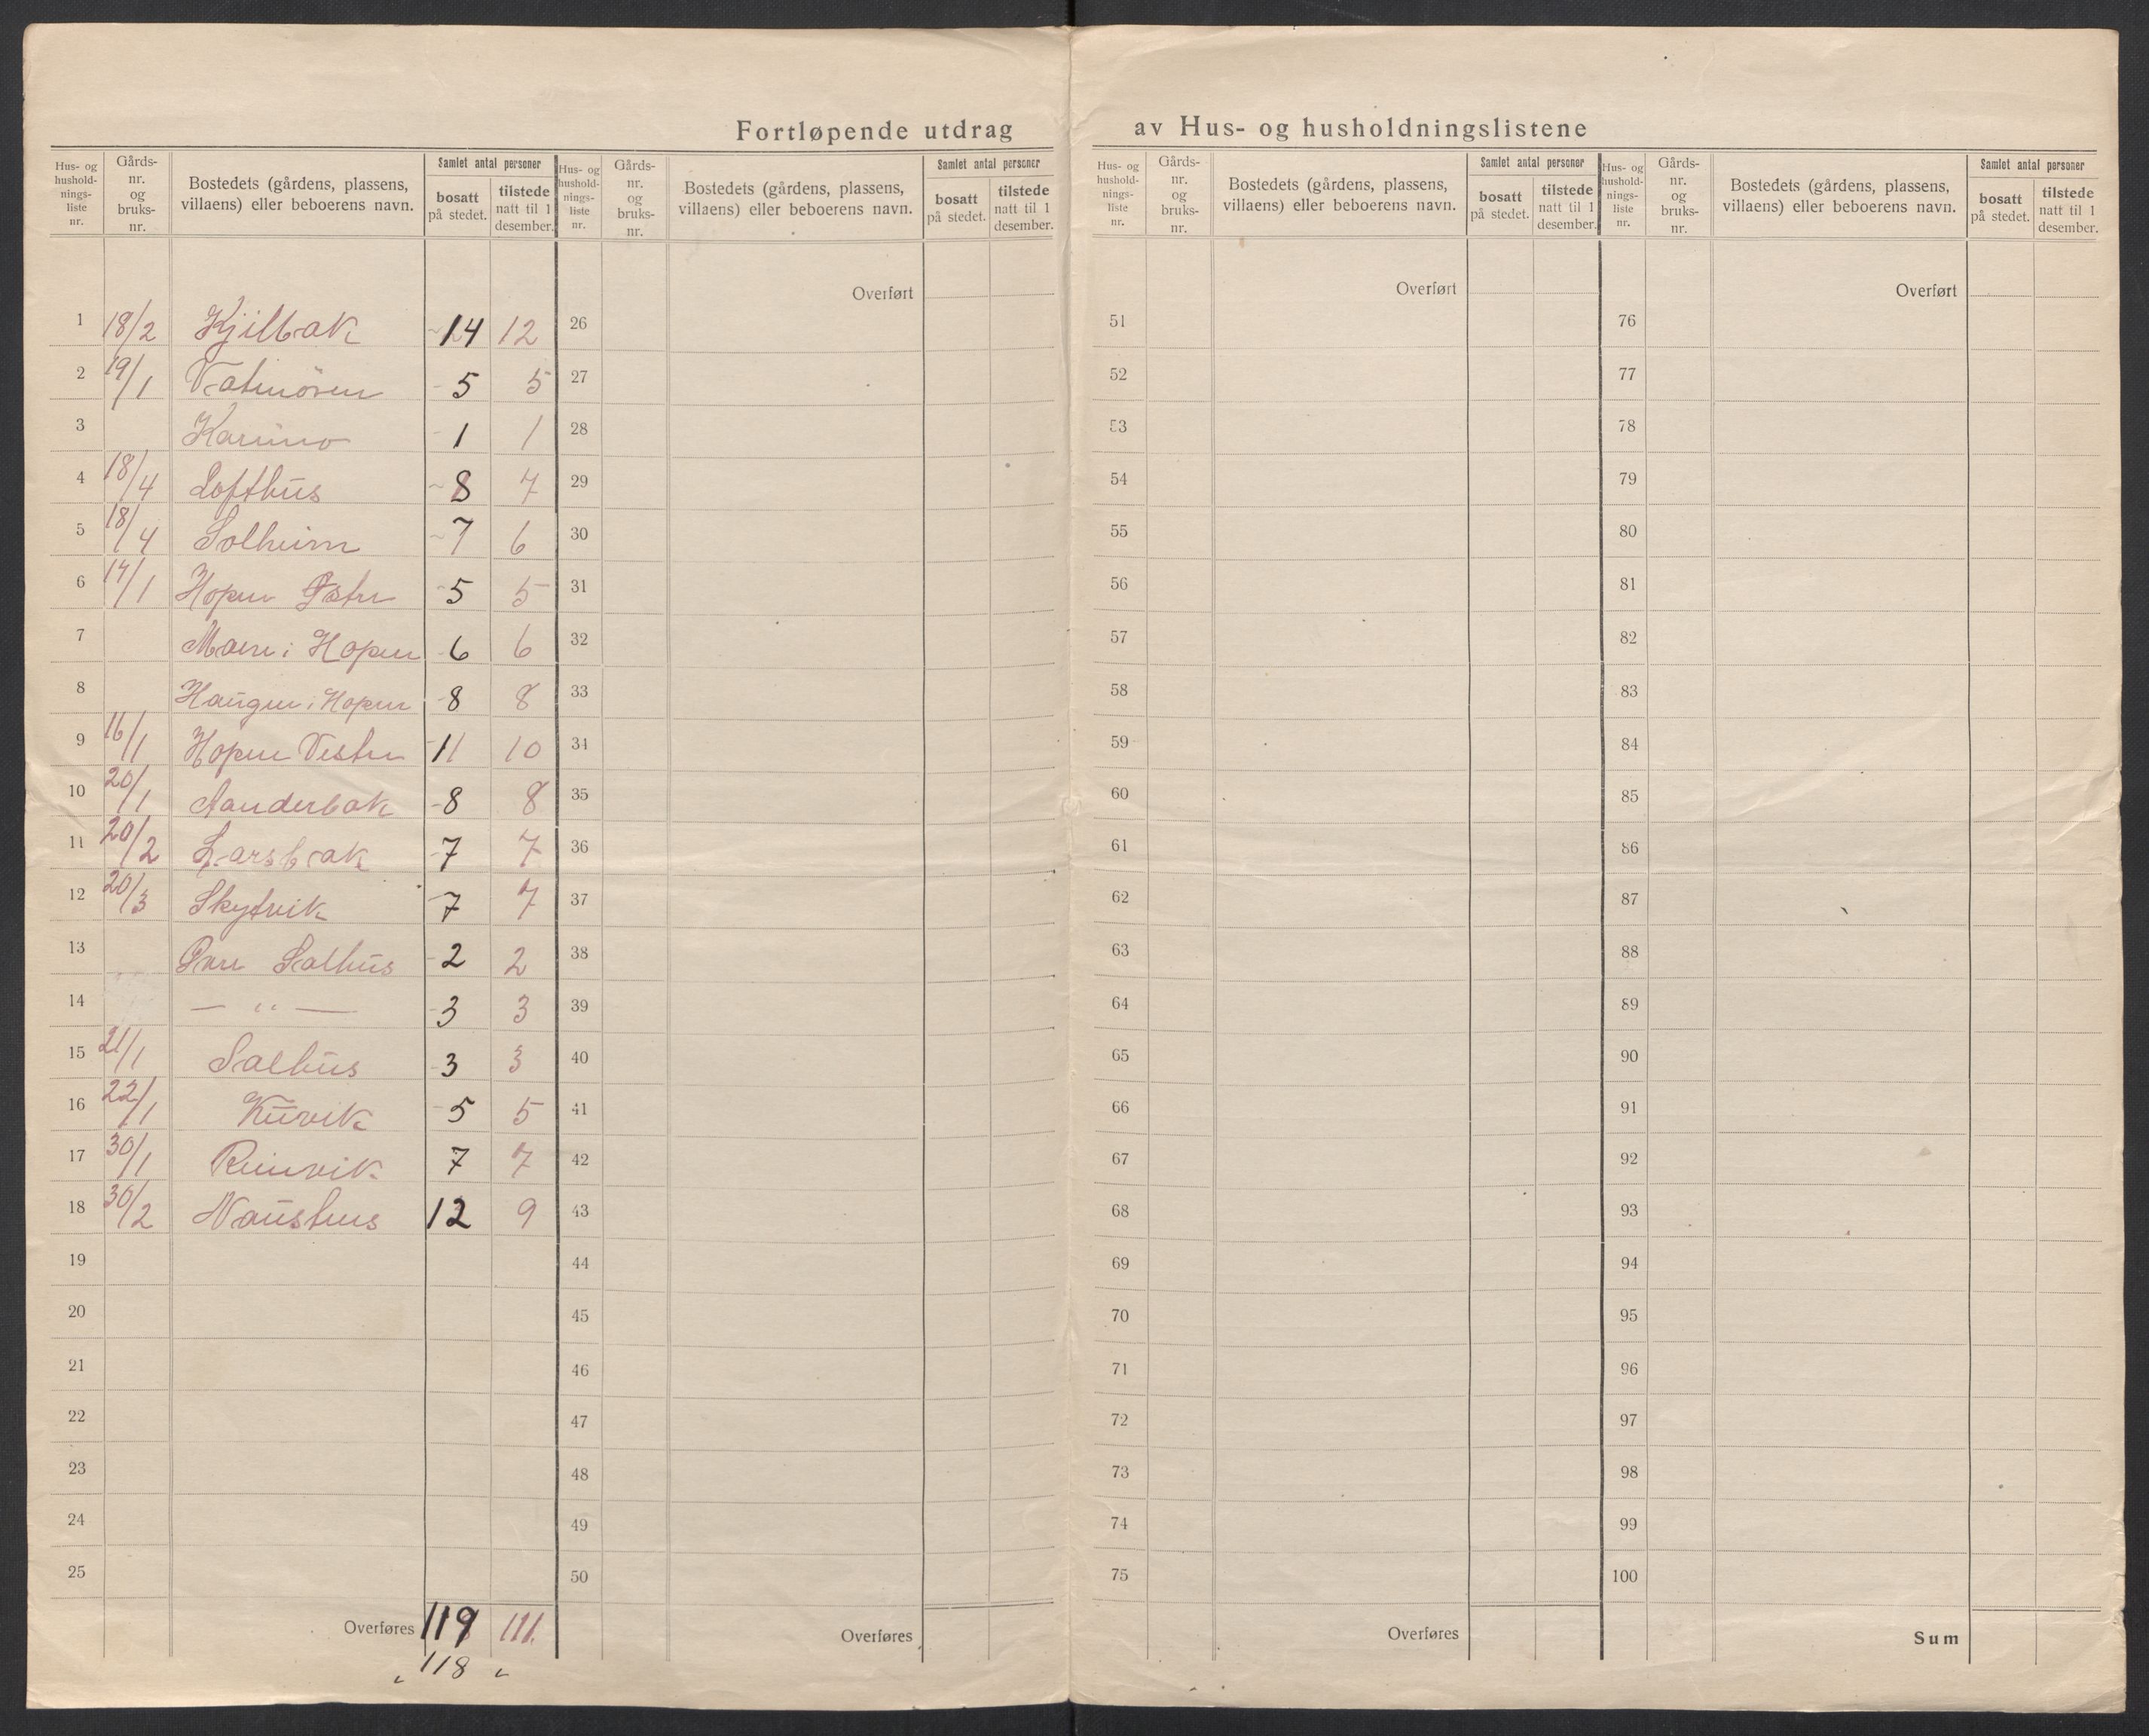 Fortløpende utdrag av Hus- og husholdningslistene
Hus- og hushold-nings-liste nr. Gårds-nr. og bruks-nr. Bostedets (gårdens, plassens, villaens) eller beboerens navn. Samlet antal personer bosatt på stedet. tilstede natt til 1 desember.
1 18/2 Kjilbak 14 12
2 19/1 Vatnøren 5 5
3 Karino 1 1
4 18/4 Lofthus 8 7
5 18/4 Solheim 7 6
6 17/1 Hopen Østre 5 5
7 Moen i Hopen 6 6
8 Haugen i Hopen 8 8
9 16/1 Hopen Vestre 11 10
10 20/1 Aanderbak 8 8
11 20/2 Larsbak 7 7
12 20/3 Skytvik 7 7
13 Salhus 2 2
14 — " — 3 3
15 21/1 Salhus 3 3
16 22/1 Kuvik 5 5
17 30/1 Reinvik 7 7
18 30/2 Naustnes 12 9
19
20
21
22
23
24
25
Overføres 119 111.
118
Hus- og hushold-nings-liste nr. Gårds-nr. og bruks-nr. Bostedets (gårdens, plassens, villaens) eller beboerens navn. Samlet antal personer bosatt på stedet. tilstede natt til 1 desember.
Overført
26
27
28
29
30
31
32
33
34
35
36
37
38
39
40
41
42
43
44
45
46
47
48
49
50
Overføres
Hus- og hushold-nings-liste nr. Gårds-nr. og bruks-nr. Bostedets (gårdens, plassens, villaens) eller beboerens navn. Samlet antal personer bosatt på stedet. tilstede natt til 1 desember.
Overført
51
52
53
54
55
56
57
58
59
60
61
62
63
64
65
66
67
68
69
70
71
72
73
74
75
Overføres
Hus- og hushold-nings-liste nr. Gårds-nr. og bruks-nr. Bostedets (gårdens, plassens, villaens) eller beboerens navn. Samlet antal personer bosatt på stedet. tilstede natt til 1 desember.
Overført
76
77
78
79
80
81
82
83
84
85
86
87
88
89
90
91
92
93
94
95
96
97
98
99
100
Sum